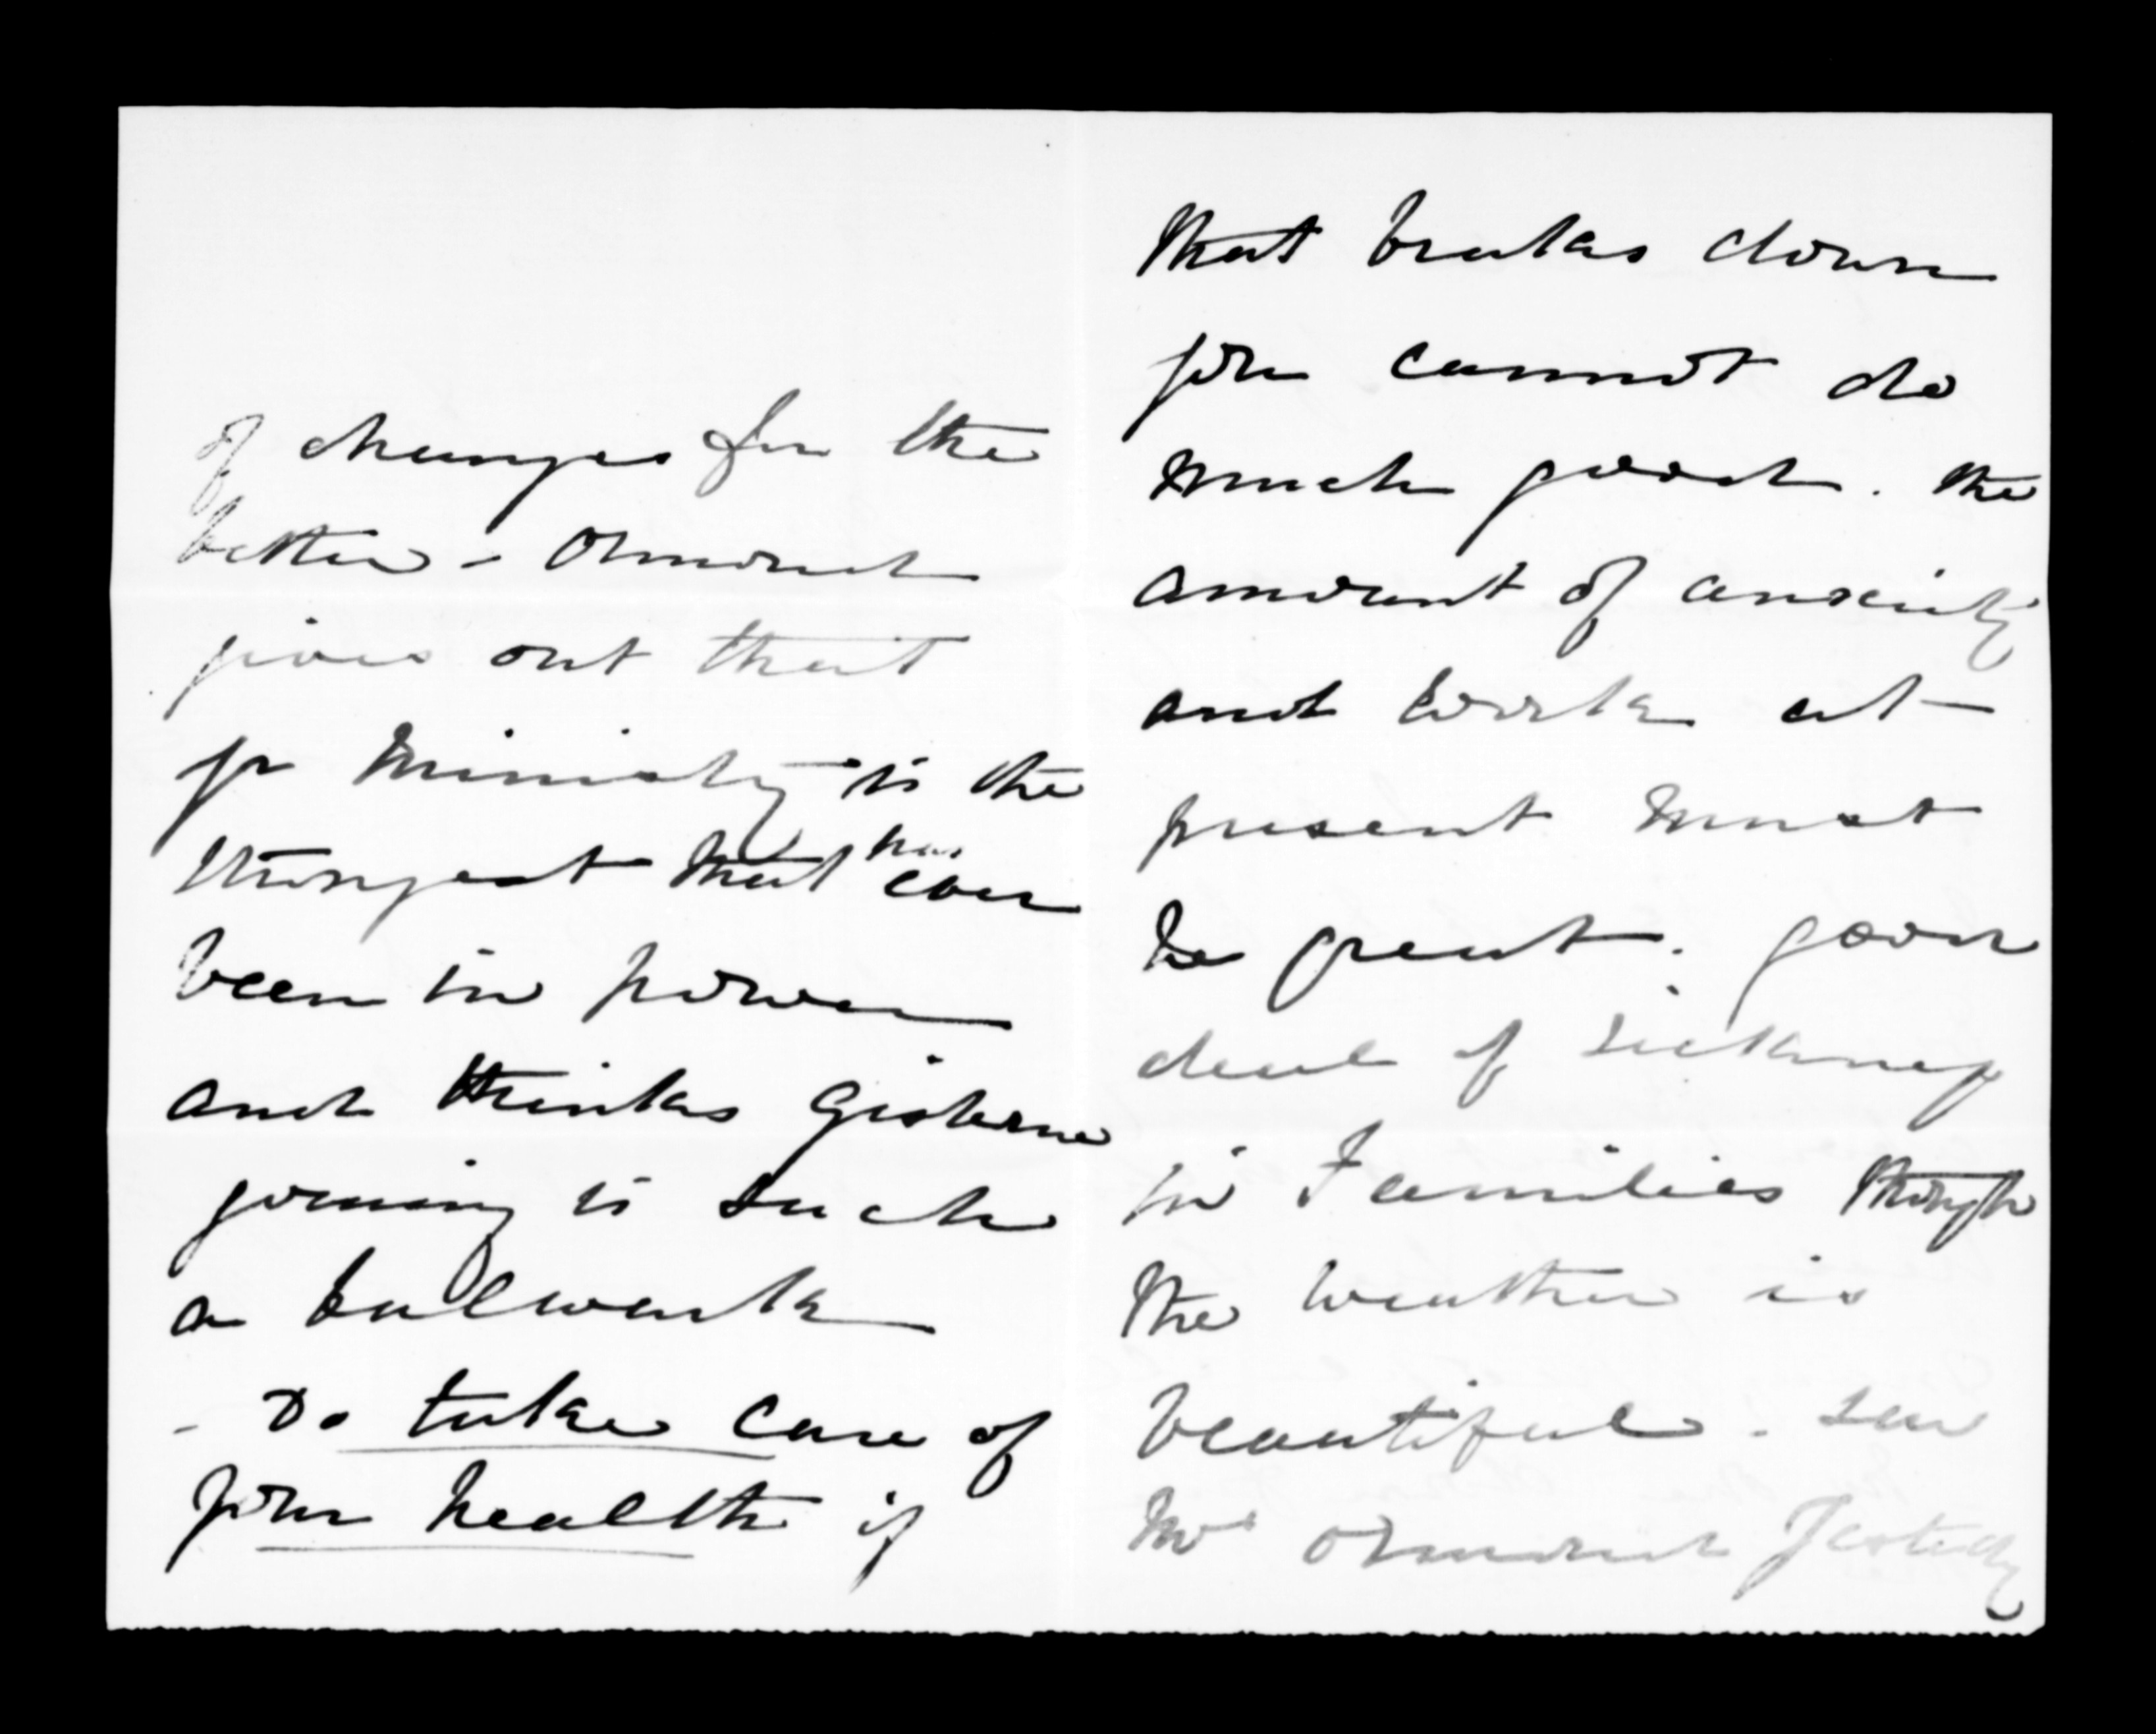 of changes for the
better - Ormond
gives out that
yr Ministry is the
strongest that has ever
been in power
and thinks Gisborne
joining is such
a bulwark
- Do take care of
your health if
that breaks down
you cannot do
much good. the
amount of anxiety
and work at
present must
be great. good
deal of sickness
in Families though
the weather is
beautiful. saw
Mrs Ormond Jesterdy